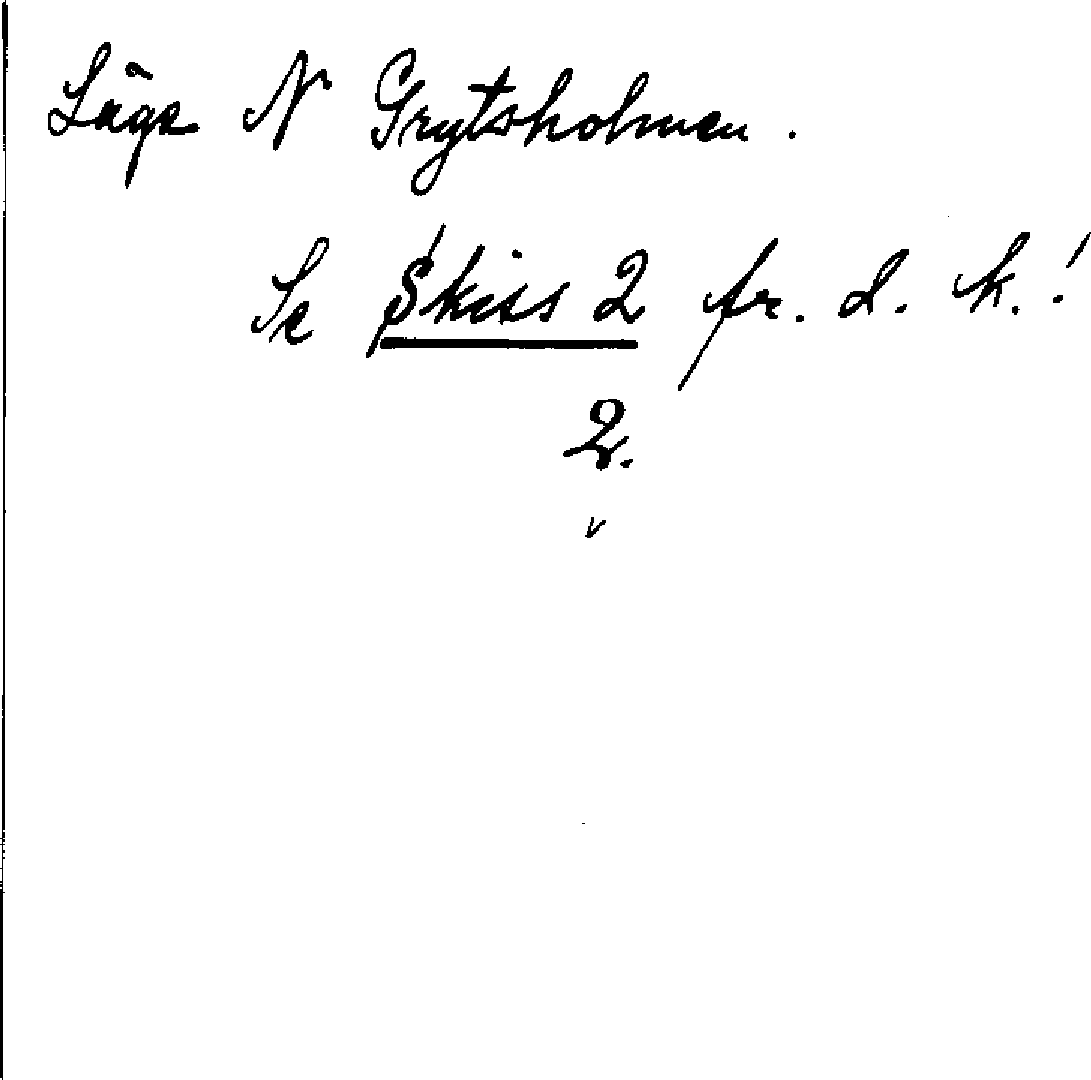 Läge N Grytsholmen.
Se Skiss 2 fr. d. k.!
2.
v